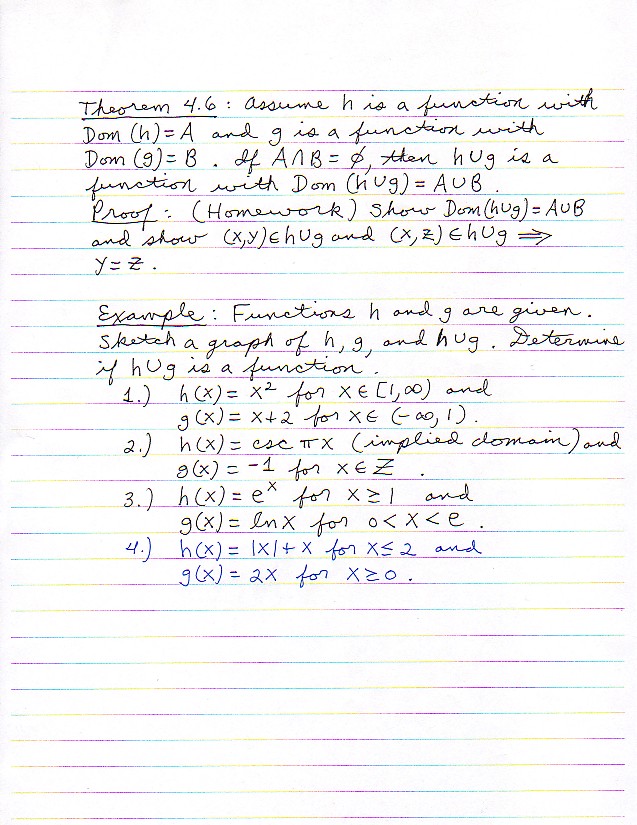 Theorem 4.6 : Assume h is a function with
Dom (h) = A and g is a function with
Dom (g) = B . If A ∩ B = ∅, then h∪g is a
function with Dom (h∪g) = A∪B .
Proof : (Homework) Show Dom(h∪g) = A∪B
and show (x,y)∈h∪g and (x,z)∈h∪g ⇒
y = z .
Example : Functions h and g are given.
Sketch a graph of h, g, and h∪g . Determine
if h∪g is a function .
1.) h(x) = x² for x ∈ [1,∞) and
g(x) = x+2 for x ∈ (-∞, 1) .
2.) h(x) = csc πx (implied domain) and
g(x) = -1 for x ∈ Z .
3.) h(x) = eˣ for x ≥ 1 and
g(x) = ln x for 0 < x < e .
4.) h(x) = |x| + x for x ≤ 2 and
g(x) = 2x for x ≥ 0 .